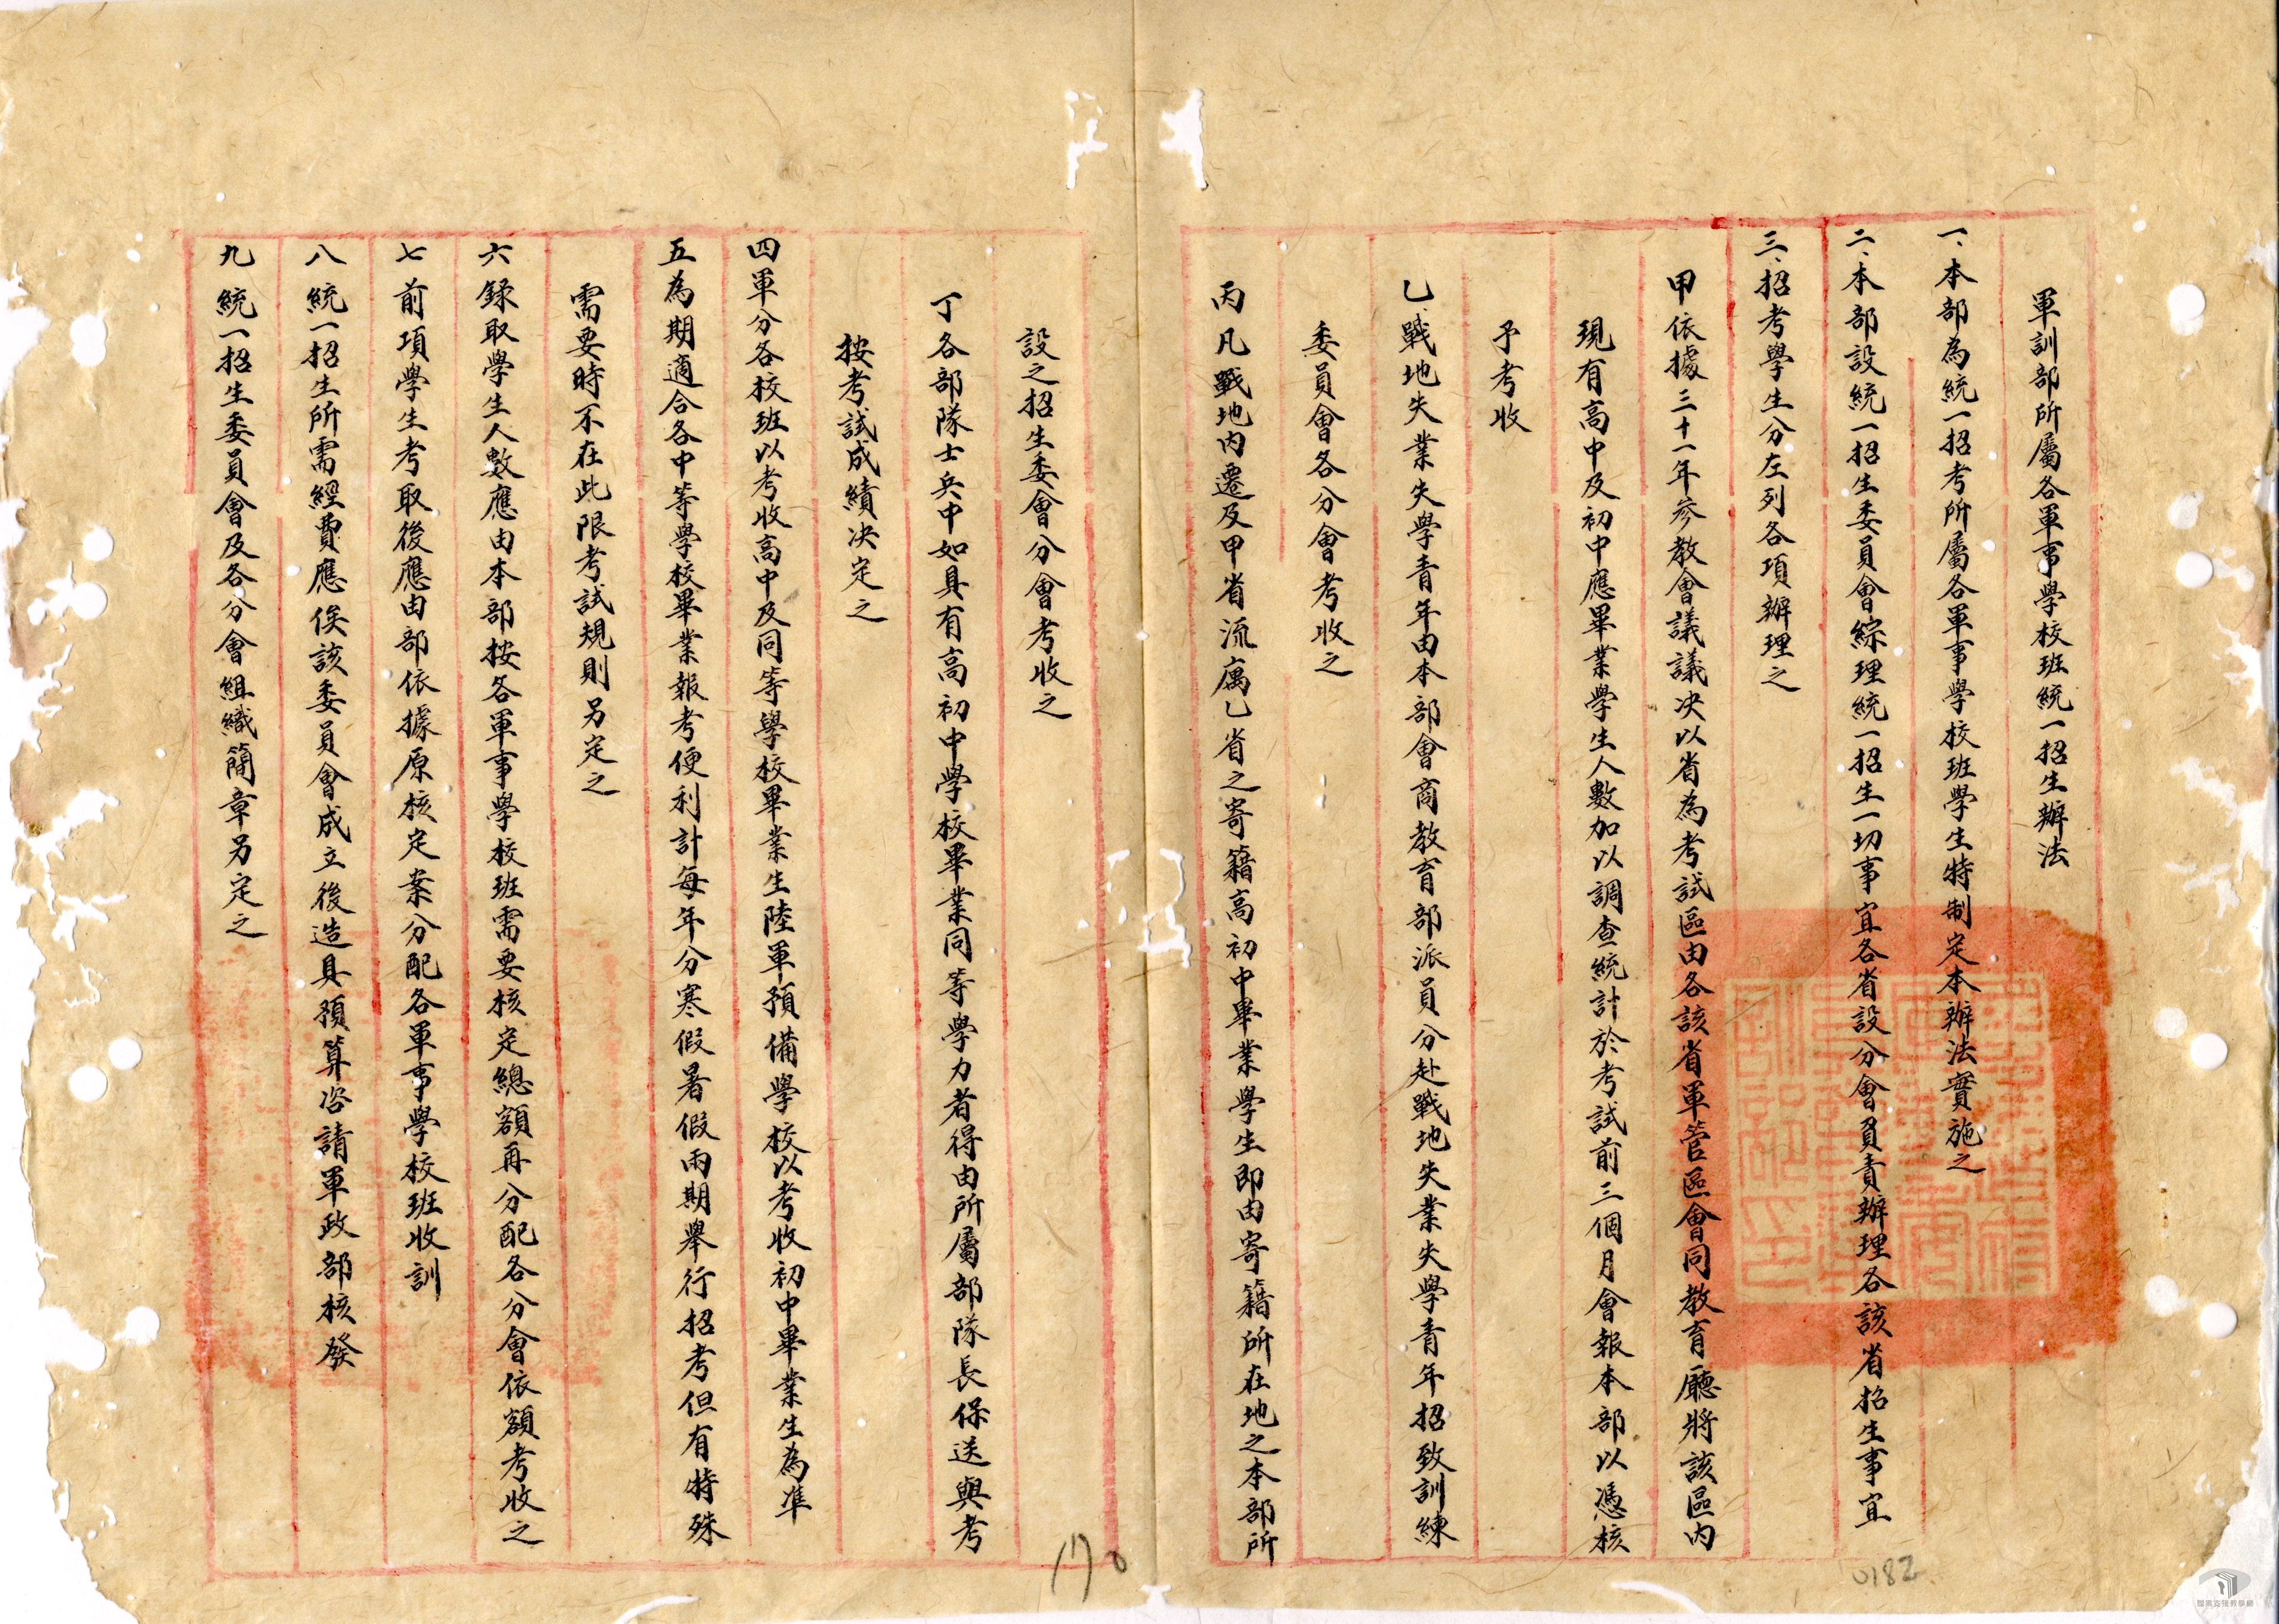 軍訓部所屬各軍事學校班統一招生辦法
一、本部為統一招考所屬各軍事學校班學生特制定本辦法實施之
二、本部設統一招生委員會綜理統一招生一切事宜各省設分會負責辦理各該省招生事宜
三、招考學生分左列各項辦理之
甲依據三十一年參教會議議決以省為考試區由各該省軍管區會同教育廳將該區內
現有高中及初中應畢業學生人數加以調查統計於考試前三個月會報本部以憑核
予考收
乙戰地失業失學青年由本部會商教育部派員分赴戰地失業失學青年招致訓練
委員會各分會考收之
丙凡戰地內遷及甲省流寓乙省之寄籍高初中畢業學生即由寄籍所在地之本部所
設之招生委會分會考收之
丁各部隊士兵中如具有高初中學校畢業同等學力者得由所屬部隊長保送與考
按考試成績決定之
四軍分各校班以考收高中及同等學校畢業生陸軍預備學校以考收初中畢業生為準
五為期適合各中等學校畢業報考便利計每年分寒假暑假兩期舉行招考但有特殊
需要時不在此限考試規則另定之
六錄取學生人數應由本部按各軍事學校班需要核定總額再分配各分會依額考收之
七前項學生考取後應由部依據原核定案分配各軍事學校班收訓
八統一招生所需經費應俟該委員會成立後造具預算咨請軍政部核發
九統一招生委員會及各分會組織簡章另定之
170
0182